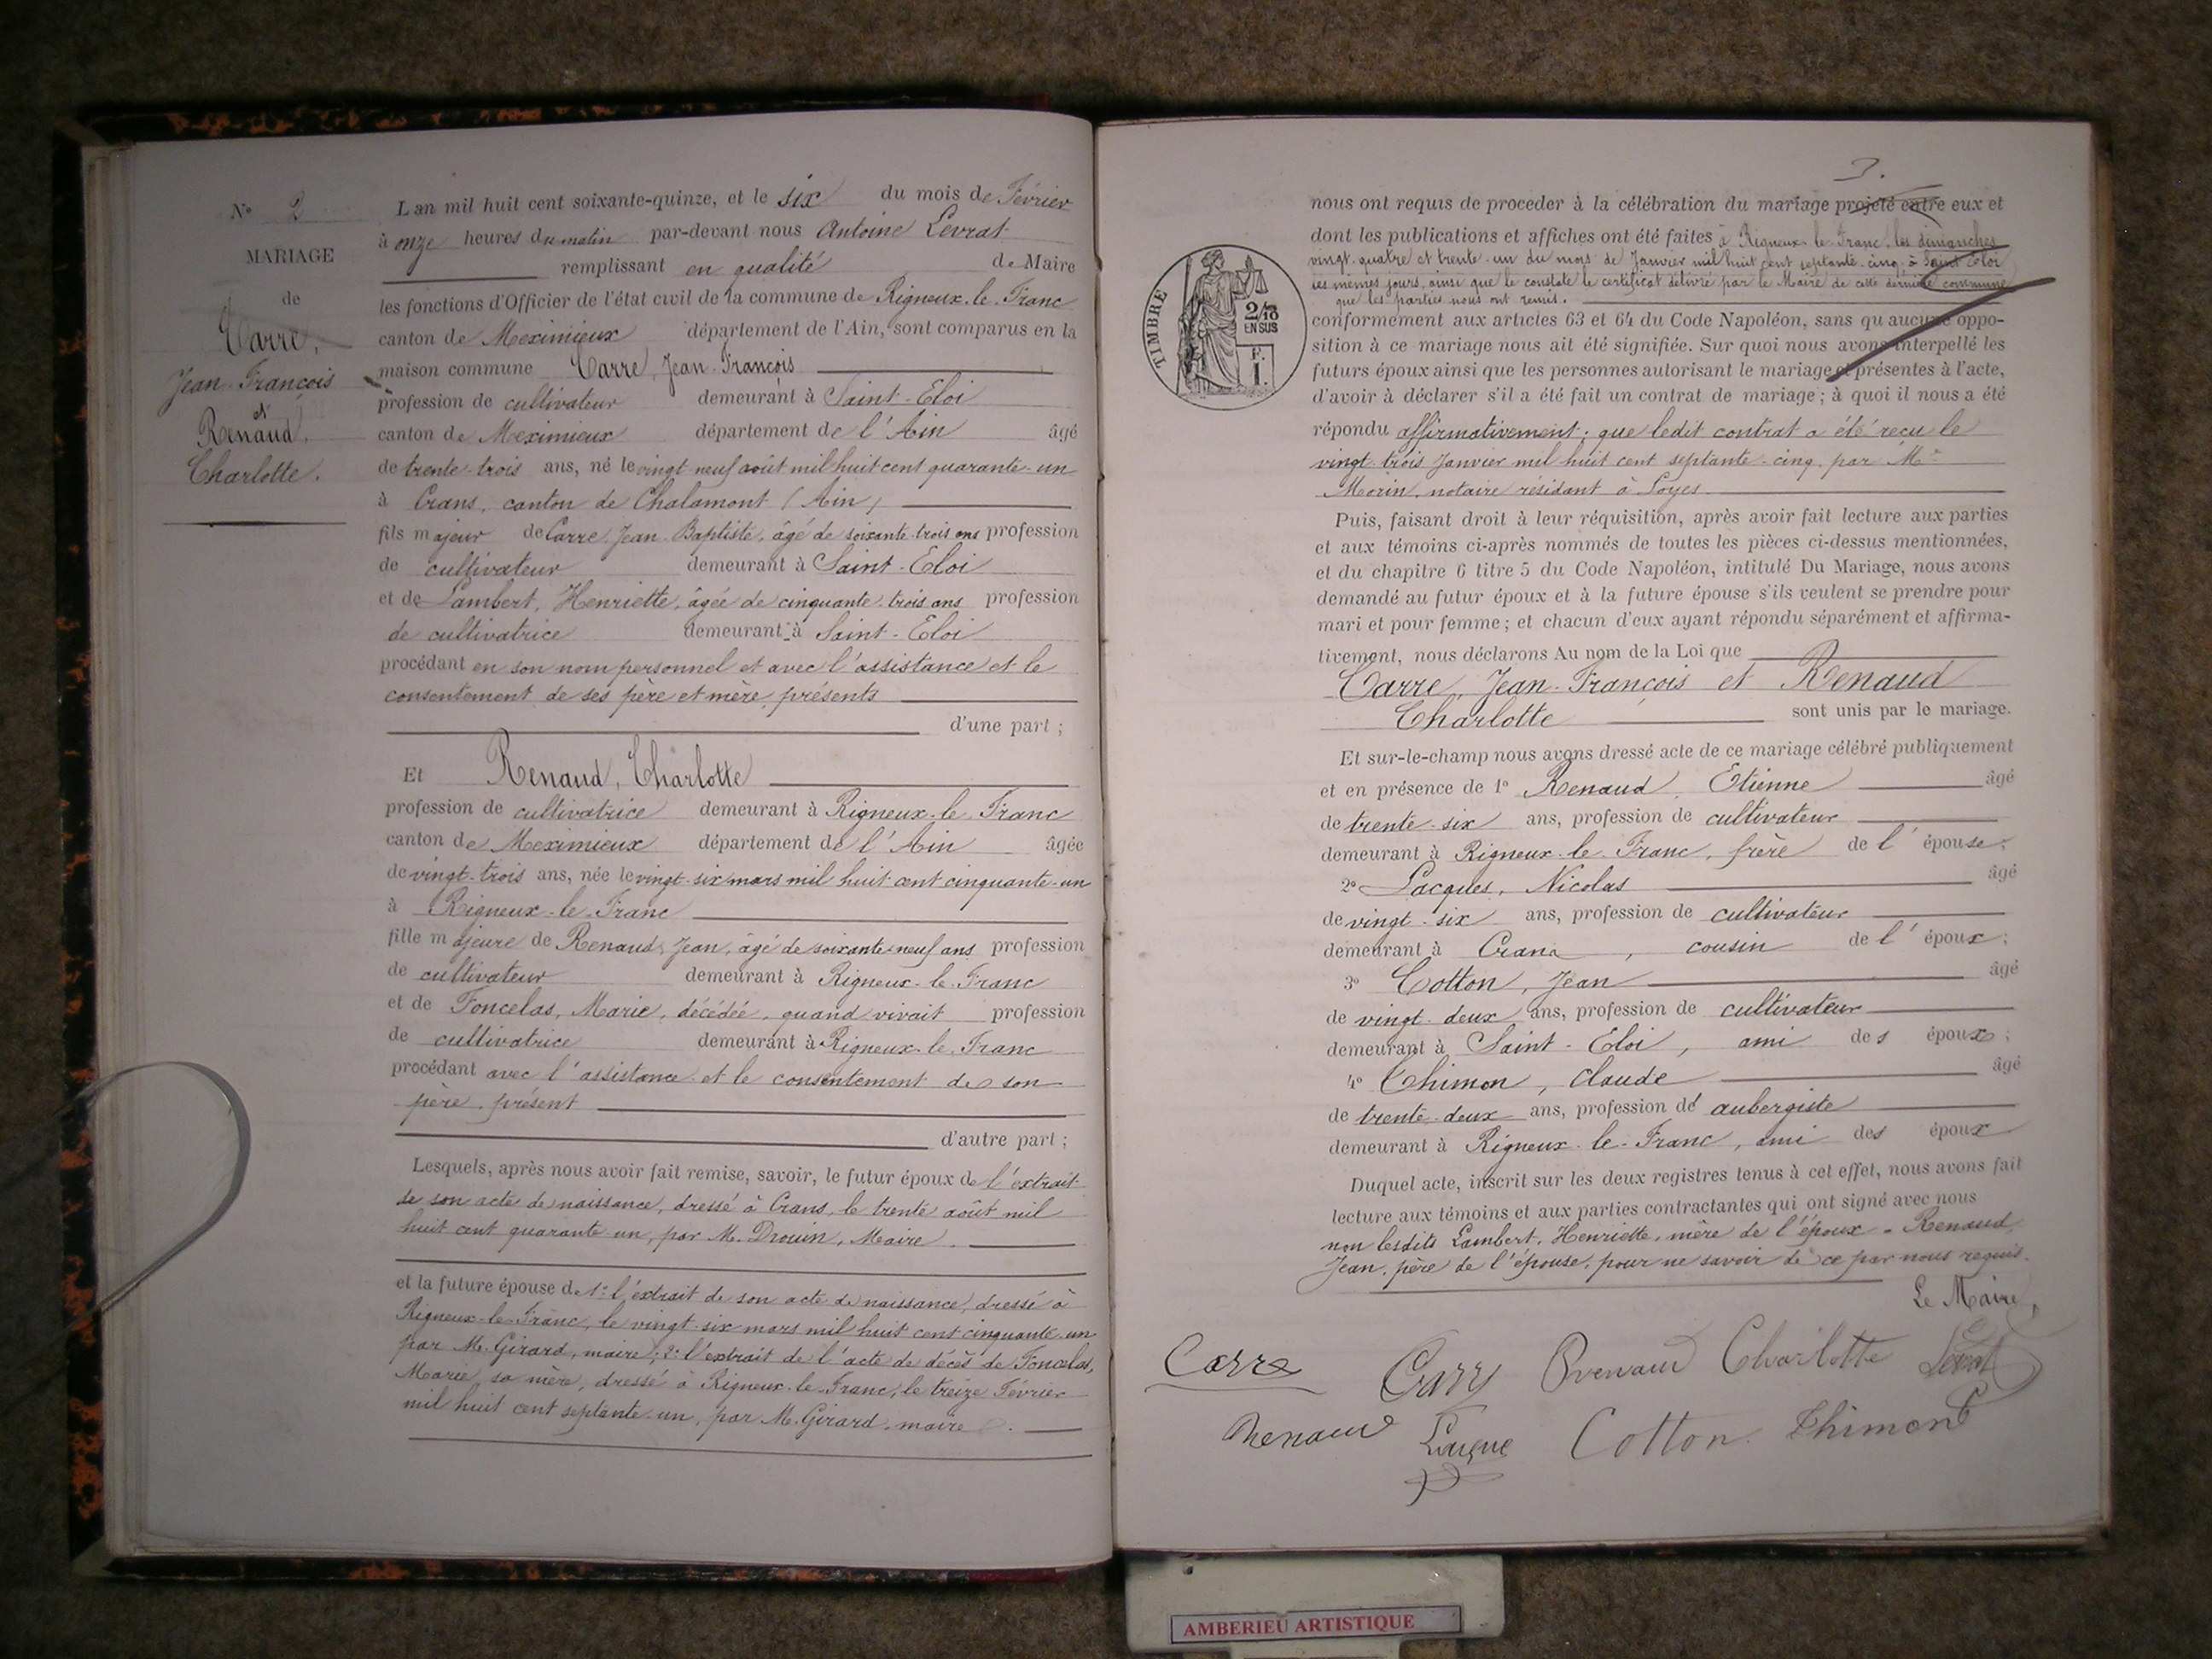 N° 2
MARIAGE
de
Carre,
Jean-François
et
Renaud,
Charlotte.
L'an mil huit cent soixante-quinze, et le six du mois de Février
à onze heures du matin par-devant nous Antoine Levrat
remplissant en qualité de Maire
les fonctions d'Officier de l'état civil de la commune de Rigneux-le-Franc
canton de Meximieux département de l'Ain, sont comparus en la
maison commune Carre, Jean-François
profession de cultivateur demeurant à Saint-Eloi
canton de Meximieux département de l'Ain âgé
de trente-trois ans, né le vingt-neuf août mil huit cent quarante-un
à Crans, canton de Chalamont (Ain)
fils majeur de Carre, Jean-Baptiste, âgé de soixante-trois ans profession
de cultivateur demeurant à Saint-Eloi
et de Lambert, Henriette, âgée de cinquante-trois ans profession
de cultivatrice demeurant à Saint-Eloi
procédant en son nom personnel et avec l'assistance et le
consentement de ses père et mère, présents
d'une part ;
Et Renaud, Charlotte
profession de cultivatrice demeurant à Rigneux-le-Franc
canton de Meximieux département de l'Ain âgée
de vingt-trois ans, née le vingt-six mars mil huit cent cinquante-un
à Rigneux-le-Franc
fille majeure de Renaud, Jean, âgé de soixante-neuf ans profession
de cultivateur demeurant à Rigneux-le-Franc
et de Foncelas, Marie, décédée, quand vivait profession
de cultivatrice demeurant à Rigneux-le-Franc
procédant avec l'assistance et le consentement de son
père, présent
d'autre part ;
Lesquels, après nous avoir fait remise, savoir, le futur époux de l'extrait
de son acte de naissance, dressé à Crans, le trente août mil
huit cent quarante-un, par M. Drouin, Maire.
et la future épouse de 1° l'extrait de son acte de naissance, dressé à
Rigneux-le-Franc, le vingt-six mars mil huit cent cinquante-un
par M. Girard, maire ; 2° l'extrait de l'acte de décès de Foncelas,
Marie, sa mère, dressé à Rigneux-le-Franc, le treize Février
mil huit cent septante-un, par M. Girard, maire.
3.
nous ont requis de proceder à la célébration du mariage projeté entre eux et
dont les publications et affiches ont été faites à Rigneux-le-Franc, les dimanches
vingt-quatre et trente-un du mois de Janvier mil huit cent septante-cinq, à Saint-Eloi
les mêmes jours, ainsi que le constate le certificat délivré par le Maire de cette dernière commune
que les parties nous ont remis.
conformément aux articles 63 et 64 du Code Napoléon, sans qu'aucune oppo-
sition à ce mariage nous ait été signifiée. Sur quoi nous avons interpellé les
futurs époux ainsi que les personnes autorisant le mariage et présentes à l'acte,
d'avoir à déclarer s'il a été fait un contrat de mariage ; à quoi il nous a été
répondu affirmativement ; que ledit contrat a été reçu le
vingt-trois Janvier mil huit cent septante-cinq, par Me
Morin, notaire résidant à Loyes
TIMBRE
2/10
EN SUS
F.
I.
Puis, faisant droit à leur réquisition, après avoir fait lecture aux parties
et aux témoins ci-après nommés de toutes les pièces ci-dessus mentionnées,
et du chapitre 6 titre 5 du Code Napoléon, intitulé Du Mariage, nous avons
demandé au futur époux et à la future épouse s'ils veulent se prendre pour
mari et pour femme ; et chacun d'eux ayant répondu séparément et affirma-
tivement, nous déclarons Au nom de la Loi que
Carre, Jean-François et Renaud
Charlotte sont unis par le mariage.
Et sur-le-champ nous avons dressé acte de ce mariage célébré publiquement
et en présence de 1° Renaud, Etienne âgé
de trente-six ans, profession de cultivateur
demeurant à Rigneux-le-Franc, frère de l'épouse ;
2° Lacques, Nicolas âgé
de vingt-six ans, profession de cultivateur
demeurant à Crans, cousin de l'époux ;
3° Cotton, Jean âgé
de vingt-deux ans, profession de cultivateur
demeurant à Saint-Eloi, ami des époux ;
4° Thimon, Claude âgé
de trente-deux ans, profession de aubergiste
demeurant à Rigneux-le-Franc, ami des époux
Duquel acte, inscrit sur les deux registres tenus à cet effet, nous avons fait
lecture aux témoins et aux parties contractantes qui ont signé avec nous
non lesdits Lambert, Henriette, mère de l'époux - Renaud,
Jean, père de l'épouse, pour ne savoir de ce par nous requis.
Le Maire,
Carre Carre Renaud Charlotte Levrat
Renaud Cotton Thimon
AMBERIEU ARTISTIQUE